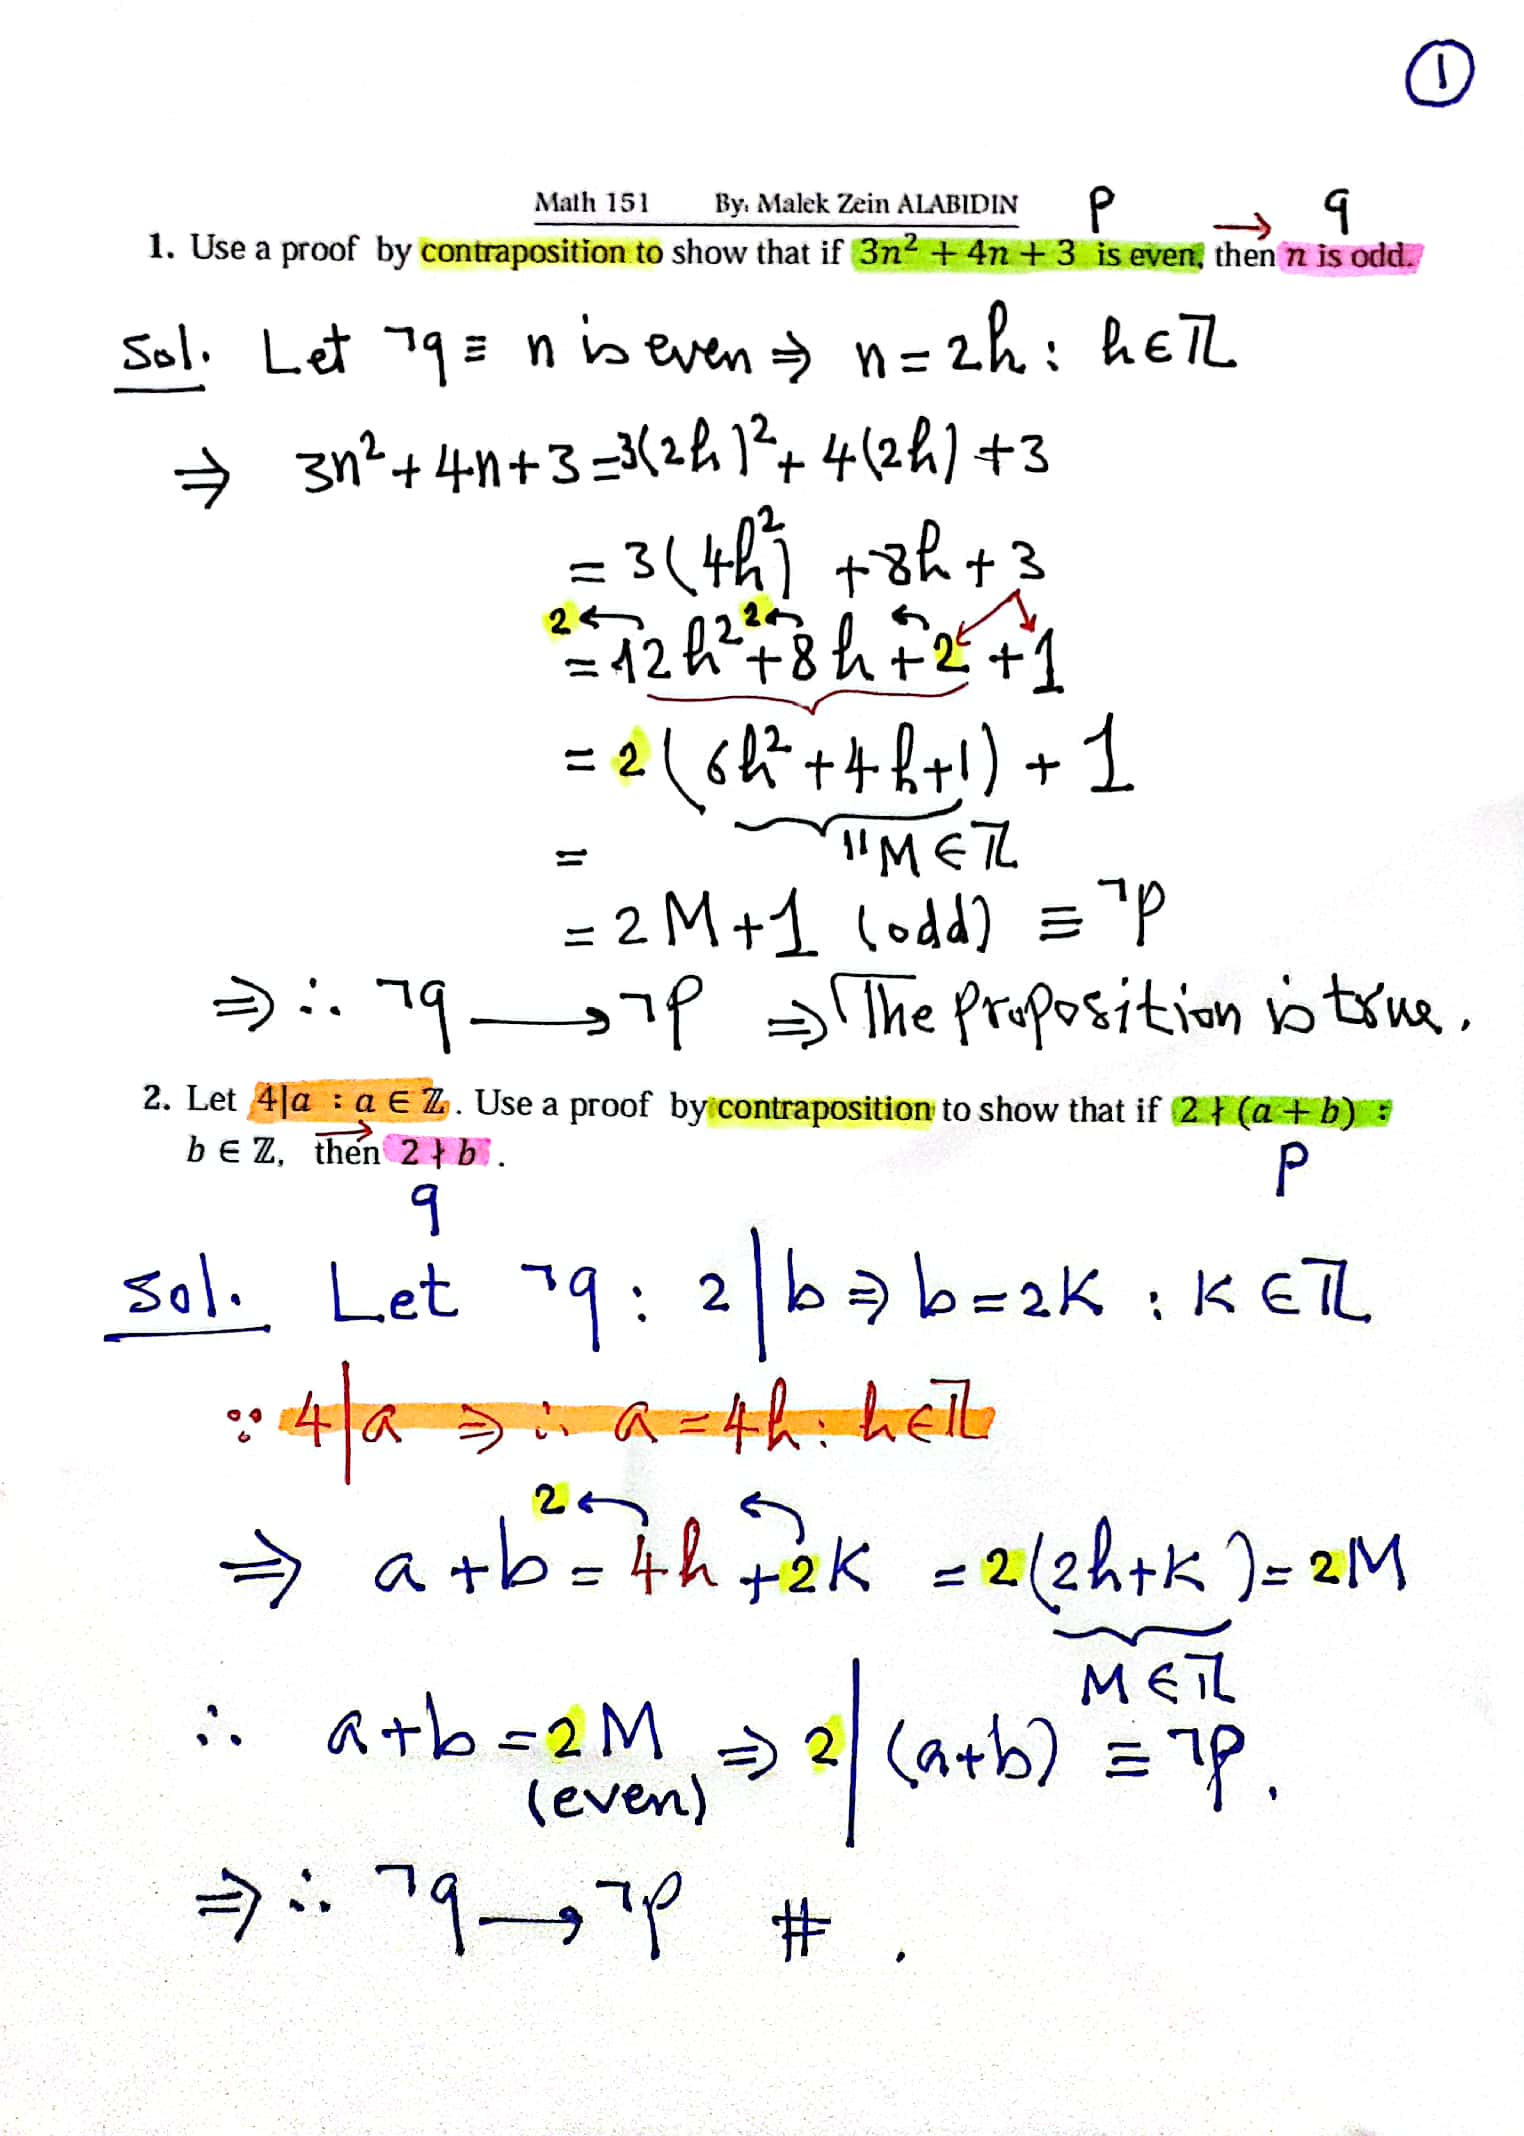 1
Math 151 By. Malek Zein ALABIDIN P → q
1. Use a proof by contraposition to show that if 3n² + 4n + 3 is even, then n is odd.
Sol. Let ¬q ≡ n is even ⇒ n = 2h : h ∈ ℤ
⇒ 3n² + 4n + 3 = 3(2h)² + 4(2h) + 3
= 3(4h²) + 8h + 3
2 ← 2 ← ←
= 12h² + 8h + 2 + 1
= 2(6h² + 4h + 1) + 1
= "M ∈ ℤ
= 2M + 1 (odd) ≡ ¬P
⇒ ∴ ¬q → ¬P ⇒ The proposition is true.
2. Let 4|a : a ∈ ℤ. Use a proof by contraposition to show that if 2 ∤ (a + b) :
b ∈ ℤ, then 2 ∤ b .
q P
Sol. Let ¬q : 2|b ⇒ b = 2K : K ∈ ℤ
∵ 4|a ⇒ ∴ a = 4h : h ∈ ℤ
2 ← ←
⇒ a + b = 4h + 2K = 2(2h + K) = 2M
M ∈ ℤ
∴ a + b = 2M ⇒ 2|(a+b) ≡ ¬P.
(even)
⇒ ∴ ¬q → ¬P # .